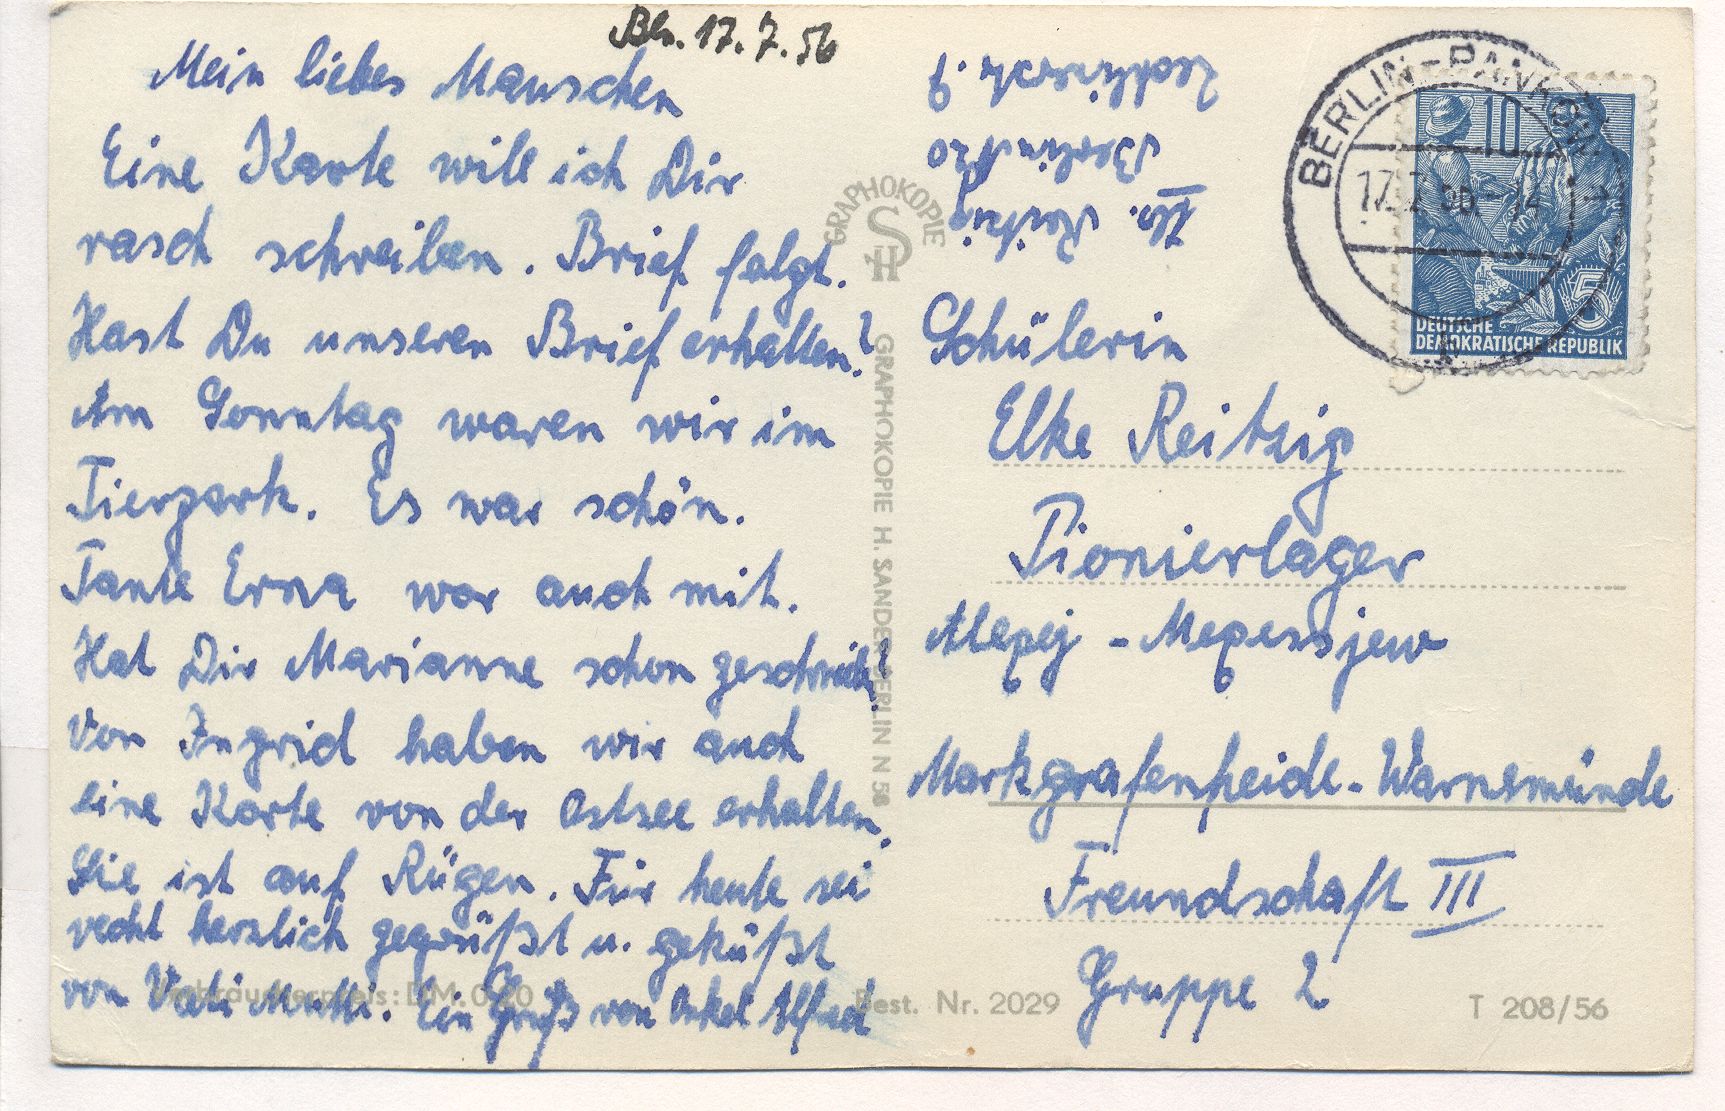 Bln. 17.7.56
Mein liebes Mauschen
Eine Karte will ich Dir
rasch schreiben. Brief folgt.
Hast Du unseren Brief erhalten?
Am Sonntag waren wir im
Tierpark. Es war schön.
Tante Erna war auch mit.
Hat Dir Marianne schon geschrieben?
Von Ingrid haben wir auch
eine Karte von der Ostsee erhalten.
Sie ist auf Rügen. Für heute sei
recht herzlich gegrüßt u. geküßt
von Vati Mutti. Ein Gruß von Onkel Alfred
Verbraucherpreis: DM. 0,20
GRAPHOKOPIE
HS
GRAPHOKOPIE H. SANDER BERLIN N 58
Reitzig
Berlin N20
BERLIN-PANKOW
17.7.56.-14
10
5
DEUTSCHE
DEMOKRATISCHE REPUBLIK
Schülerin
Elke Reitzig
Pionierlager
Alexej - Meressjew
Markgrafenheide - Warnemünde
Freundschaft III
Gruppe 2
Best. Nr. 2029
T 208/56